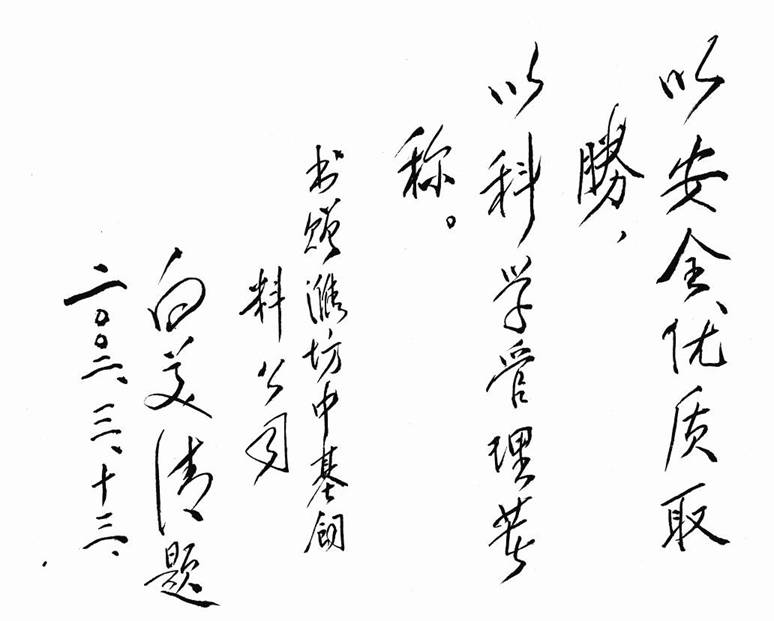 以安全、优质取
勝，
以科学管理著
称。
书赠潍坊中基饲
料公司
白美清题
二〇〇二、三、十三、